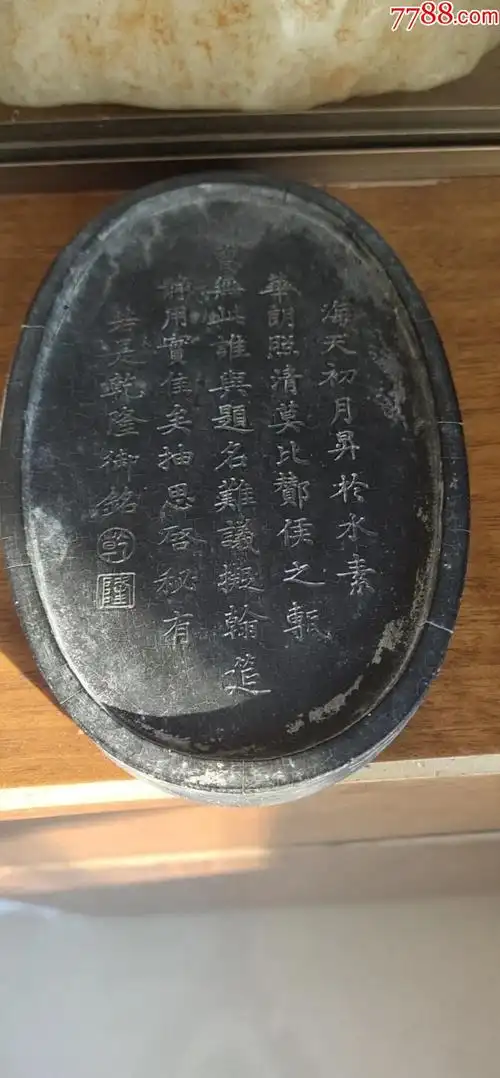 7788.com
海天初月昇於水素
華朗照清莫比酇侯之甎
曾無此誰與題名難議擬翰筵
靜用實佳矣抽思啓秘有
若是乾隆御銘
隆